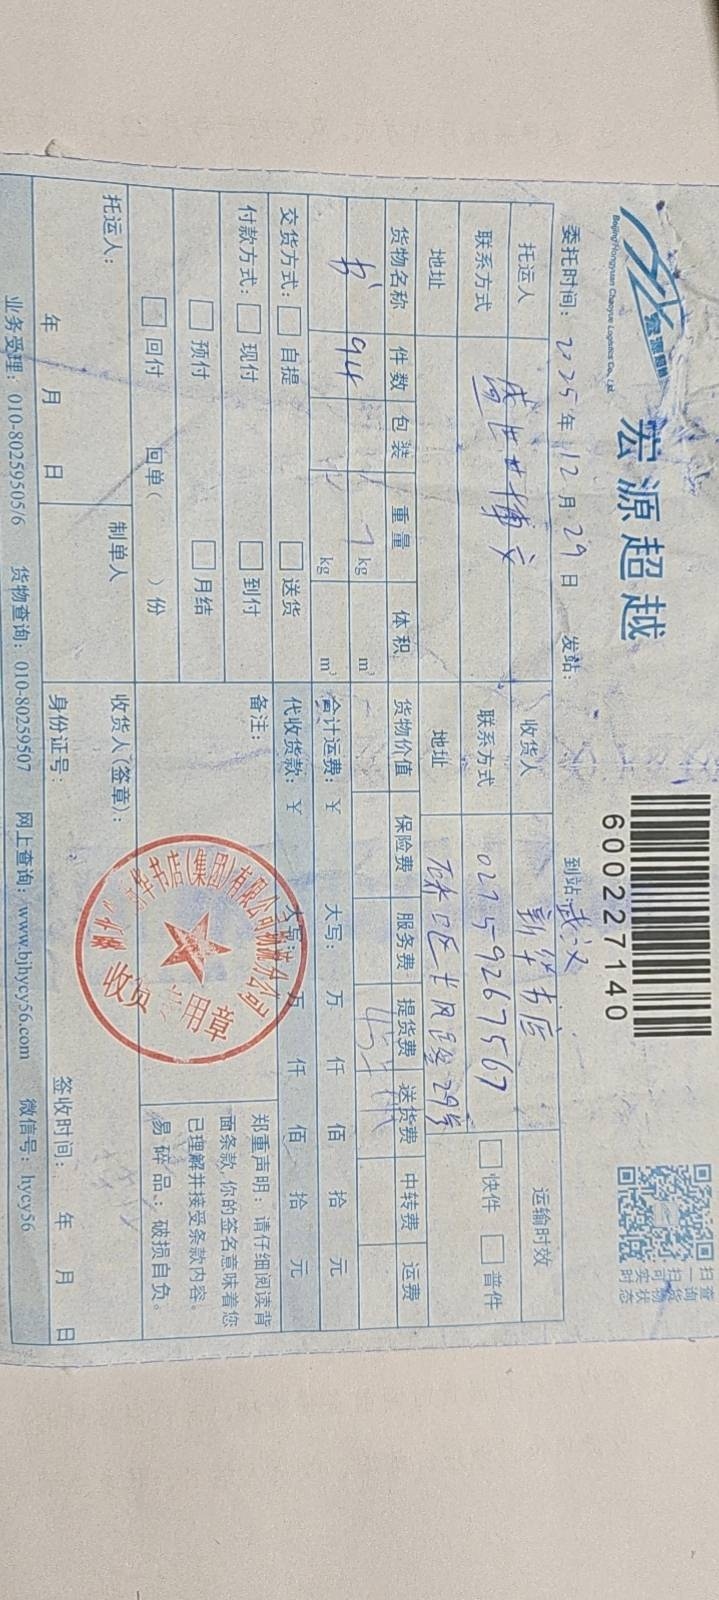 宏源超越
Beijing Hongyuan Chaoyue Logistics Co., Ltd.
6002227140
扫一扫
查询货物
可实时状态
委托时间：2025年12月29日 发站： 到站：武汉
托运人 盛世博文 收货人 新华书店 运输时效
联系方式 联系方式 02759267567 快件 普件
地址 地址 硚口区长风路29号
货物名称 件数 包装 重量 体积 货物价值 保险费 服务费 提货费 送货费 中转费 运费
kg m³
书 94 kg m³ 合计运费：¥ 大写： 万 仟 佰 拾 元
交货方式： 自提 送货 代收货款：¥ 大写： 万 仟 佰 拾 元
付款方式： 现付 到付 备注：
预付 月结
回付 回单（ ）份
郑重声明：请仔细阅读背
面条款，你的签名意味着您
已理解并接受条款内容。
易碎品：破损自负。
书店(集团)有限公司物流分公司
收货专用章
托运人： 制单人 收货人(签章)：
年 月 日 身份证号： 签收时间： 年 月 日
业务受理：010-80259505/6 货物查询：010-80259507 网上查询：www.bjhycy56.com 微信号：hycy56